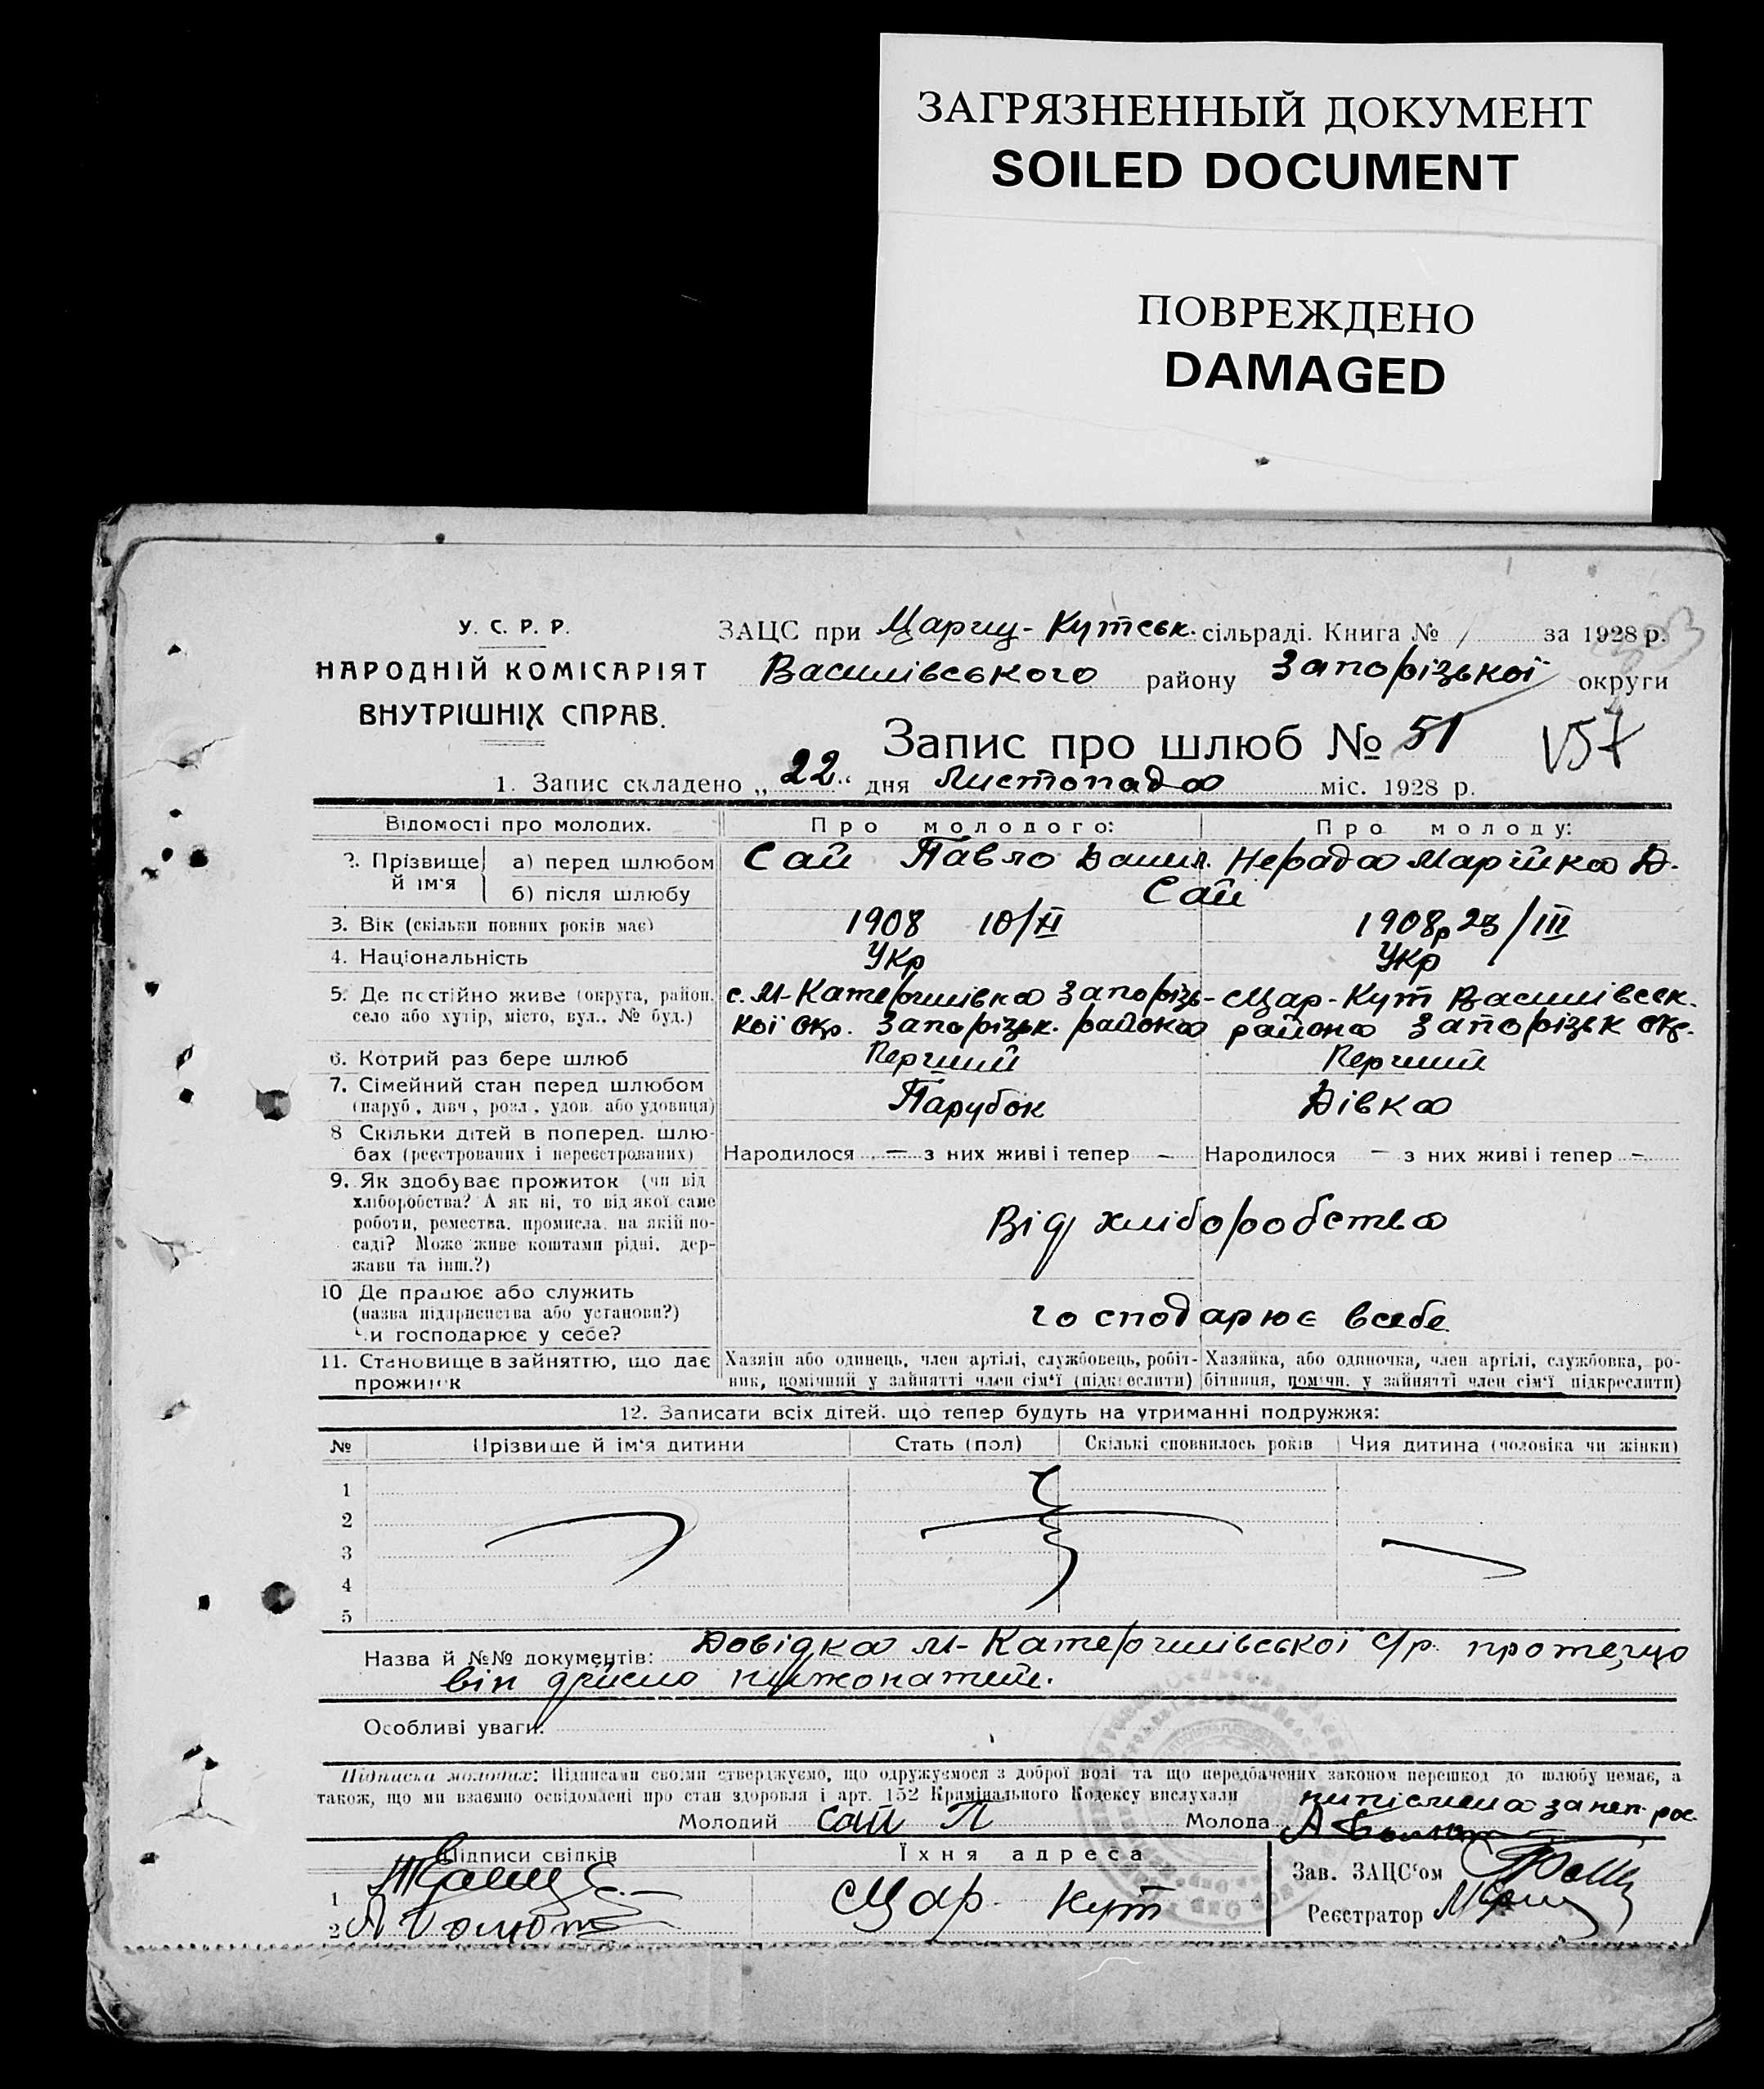 ЗАГРЯЗНЕННЫЙ ДОКУМЕНТ
SOILED DOCUMENT
ПОВРЕЖДЕНО
DAMAGED
У. С. Р. Р.
НАРОДНІЙ КОМІСАРІЯТ
ВНУТРІШНІХ СПРАВ.
ЗАЦС при Цариц-Кутськ. сільраді. Книга № 1 за 1928 р.
Василівського району Запорізької округи
Запис про шлюб № 51
157
1. Запис складено „ 22 “ дня Листопада міс. 1928 р.
Відомості про молодих. Про молодого: Про молоду:
2. Прізвище й ім'я а) перед шлюбом Сай Павло Данил. Нерада Марійка Д.
б) після шлюбу Сай
3. Вік (скільки повних років має) 1908 10/XI 1908р 23/III
4. Національність Укр Укр
5. Де постійно живе (округа, район, с. М-Катеринівка Запорізь- Цар-Кут Василівськ.
село або хутір, місто, вул., № буд.) кої Окр. Запорізьк. района района Запорізьк окр.
6. Котрий раз бере шлюб Перший Перший
7. Сімейний стан перед шлюбом Парубок Дівка
(паруб., дівч., розл., удов. або удовиця)
8 Скільки дітей в поперед. шлю-
бах (реєстрованих і нереєстрованих) Народилося — з них живі і тепер – Народилося — з них живі і тепер –
9. Як здобуває прожиток (чи від
хліборобства? А як ні, то від якої саме
роботи, ремества, промисла, на якій по-
саді? Може живе коштами рідні, дер-
жави та інш.?) Від хліборобства
10 Де працює або служить
(назва підприємства або установи?)
Чи господарює у себе? господарює в себе
11. Становище в зайняттю, що дає Хазяїн або одинець, член артілі, службовець, робіт- Хазяйка, або одиночка, член артілі, службовка, ро-
прожиток ник, помічний у зайнятті член сім'ї (підкреслити) бітниця, помічн. у зайнятті член сім'ї підкреслити)
12. Записати всіх дітей, що тепер будуть на утриманні подружжя:
№ Прізвище й ім'я дитини Стать (пол) Скількі сповнилось років Чия дитина (чоловіка чи жінки)
1
2
3
4
5
Назва й №№ документів: Довідка М-Катеринівської с/р. про те, що
він дійсно
Особливі уваги:
Підписка молодих: Підписами своїми стверджуємо, що одружуємося з доброї волі та що передбачених законом перешкод до шлюбу немає, а
також, що ми взаємно освідомлені про стан здоровля і арт. 152 Кримінального Кодексу вислухали
Молодий Сай П Молода
Підписи свідків Їхня адреса Зав. ЗАЦС'ом
1 Цар Кут
2 Реєстратор